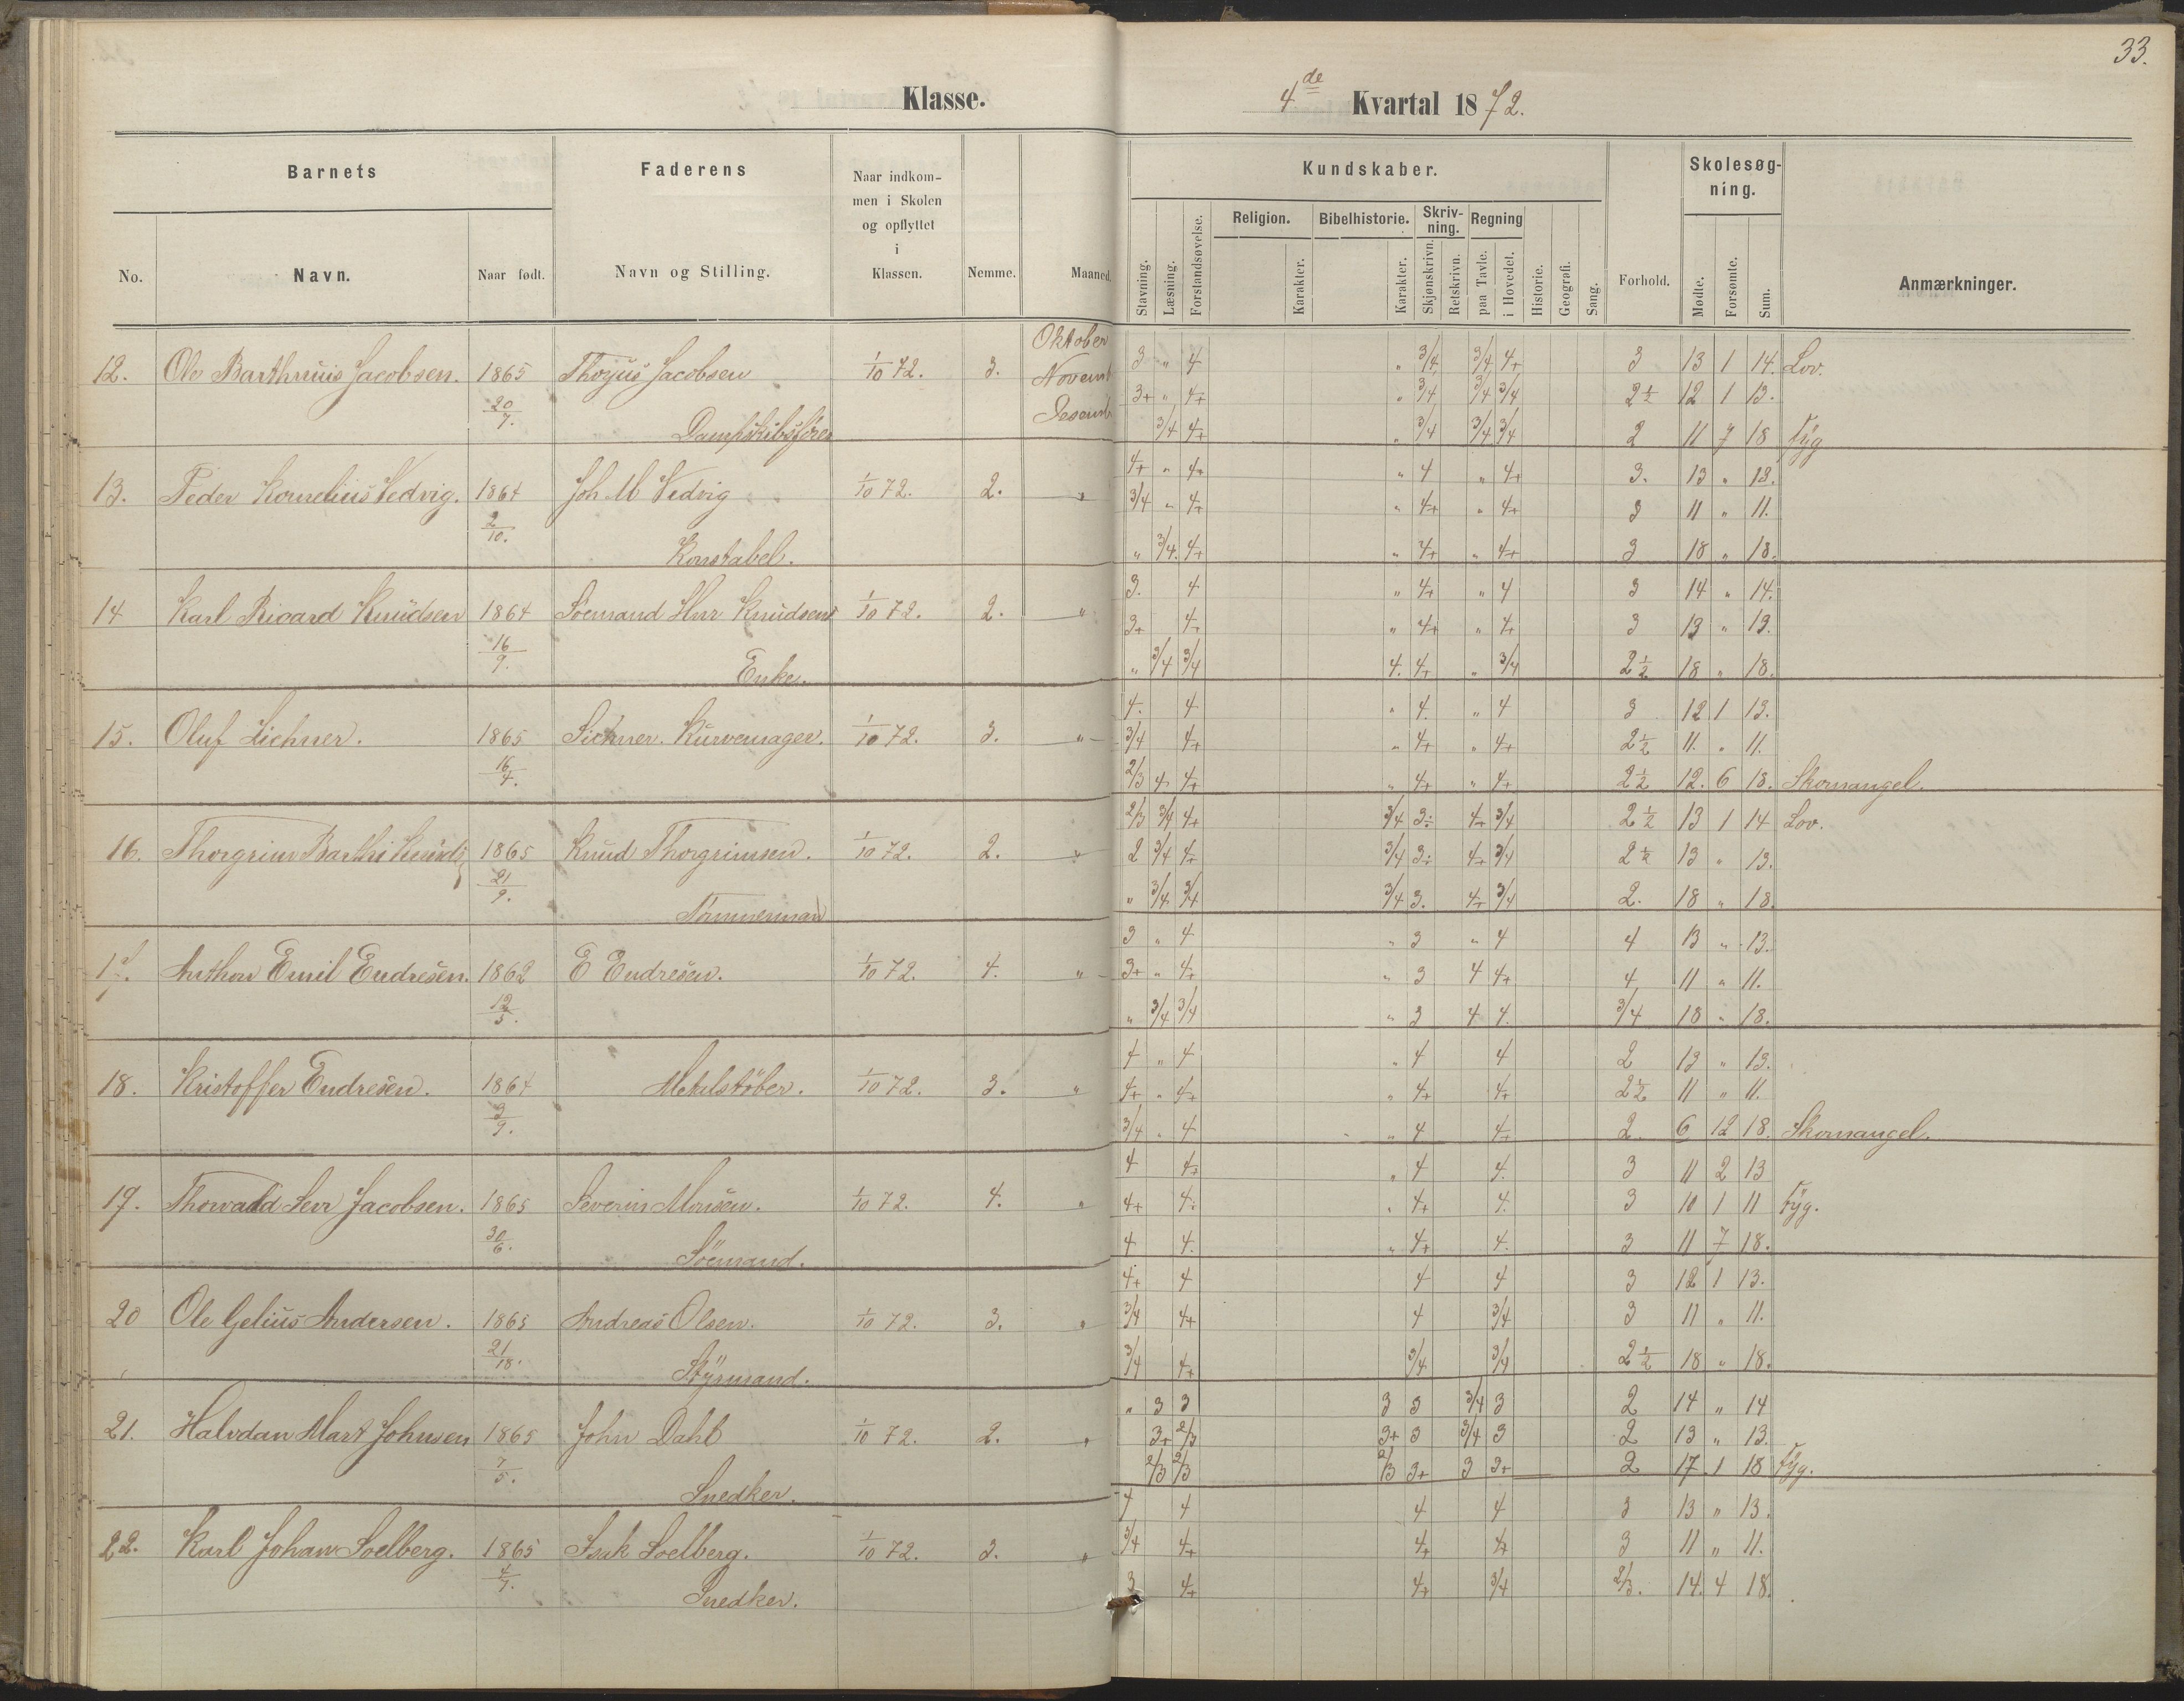 33.
Klasse.
4de Kvartal 1872.
Barnets
Faderens
Naar indkom-
men i Skolen
og opflyttet
i
Klassen.
Kundskaber.
Skolesøg-
ning.
Religion. Bibelhistorie. Skriv-
ning. Regning
No. Navn. Naar født. Navn og Stilling. Nemme. Maaned.
Stavning. Læsning. Forstandsøvelse. Karakter. Karakter. Skjønskrivn. Retskrivn. paa Tavle. i Hovedet. Historie. Geografi. Sang. Forhold. Mødte. Forsømte. Sum. Anmærkninger.
Oktober 3 " 4 " 3/4 3/4 4+ 3 13 1 14. Lov.
12. Ole Jacobsen. 1865 Jacobsen 1/10 72. 3. 3+ " 4+ " 3/4 3/4 3/4 2½ 12 1 13.
20/7. 3/4 4+ " 3/4 3/4 3/4 2 11 7 18 Syg
4+ " 4+ " 4 " 4+ 3. 13 " 13.
13. Peder Kornelius Vedvig. 1864 Joh M Vedvig 1/10 72. 2. " 3/4 " 4+ " 4+ " 4+ 3 11 " 11.
2/10. Konstabel. " 3/4 4+ " 4+ " 4+ 3 18 " 18.
3. 4 " 4+ " 4 3 14 " 14.
14 Karl Ricard Knudsen 1864 Sömand Knudsens 1/10 72. 2. " 3+ 4+ " 4+ " 4+ 3 13 " 13.
16/9. Enke. " 3/4 3/4 4. 4+ " 3/4 2½ 18 " 18.
4. 4 " 4. " 4 3 12 1 13.
15. Oluf Lichner. 1865 Kurvemager. 1/10 72. 3. " 3/4 4+ " 4+ " 4+ 2½ 11. " 11.
16/4. 2/3 4 4+ " 4+ " 4+ 2½ 12. 6 18. Skomangel.
2/3 3/4 4+ 3/4 3÷ 4+ 3/4 2½ 13 1 14 Lov.
16. Thorgrim 1865 Knud Thorgrimsen. 1/10 72. 2. " 2 3/4 4+ 3/4 3÷ 4+ 3/4 2½ 13 " 13.
21/9. Tömmermand " 3/4 3/4 3/4 3. 4+ 3/4 2. 18 " 18.
3 " 4 " 3 " 4 4 13 " 13.
17. Anthon Emil Endresen. 1862 E Endresen. 1/10 72. 4. " 3+ " 4+ " 3 4 4+ 4 11 " 11.
12/5. " 3/4 3/4 " 3 4 4. 3/4 18 " 18.
4 " 4 " 4 4 2 13 " 13.
18. Kristoffer Endresen. 1864 Metalstöber. 1/10 72. 3. " 4+ " 4+ " 4+ 4+ 2½ 11 " 11.
3/9. 3/4 " 4 " 4 4+ 2. 6 12 18. Skomangel.
4 4+ " 4 4. 3 11 2 13
19. Thorvald Jacobsen. 1865 Severin Monsen. 1/10 72. 4. " 4+ 4. " 4+ 4. 3 10 1 11 Syg.
30/6. Sömand. 4 4. " 4+ 4. 3 11 7 18.
4+ 4 4 4 3 12 1 13.
20 Ole Gelius Andersen. 1865 Andreas Olsen. 1/10 72. 3. " 3/4 4+ 4 3/4 3 11 " 11.
Styrmand. 3/4 4+ 3/4 3/4 2½ 18 " 18.
" 3 3 3 3 3/4 3 2 14 " 14
21. Halvdan Mart Johnsen 1865 John Dahl 1/10 72. 2. " 3+ 2/3 3+ 3 3/4 3 2 13 " 13.
7/5. Snedker. 2/3 2/3 2/3 3+ 3 3+ 2 17 1 18 Syg.
4 4 4 4 3 13 " 13.
22. Karl Johan Soelberg. 1865 Isak Soelberg. 1/10 72. 3. " 3/4 4+ 4+ 4+ 3 11 " 11.
4/7. Snedker. 3 4+ 4+ 3/4 2/3. 14. 4 18.